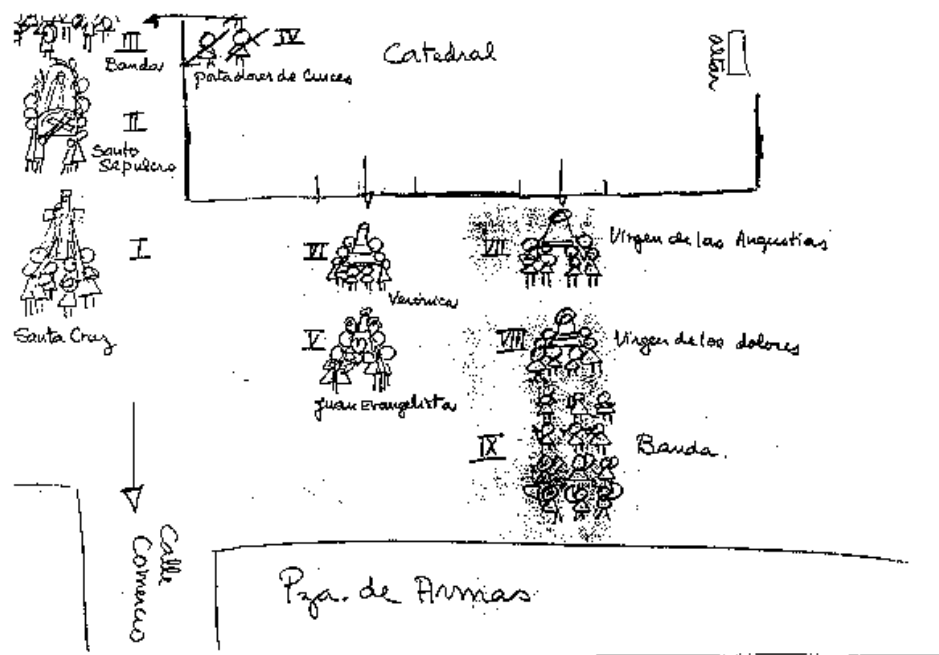 III
Banda
IV
portadores de Cruces
Catedral
altar
II
Santo
Sepulcro
I
Santa Cruz
VI
Verónica
V
Juan Evangelista
VII
Virgen de las Angustias
VIII
Virgen de los dolores
IX
Banda.
Calle
Comercio
Pza. de Armas